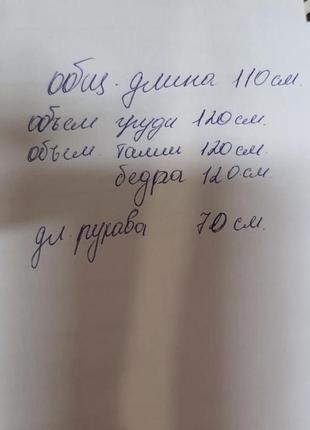 общ. длина 110 см.
объем груди 120 см.
объем талии 120 см.
бедра 120 см.
дл. рукава 70 см.